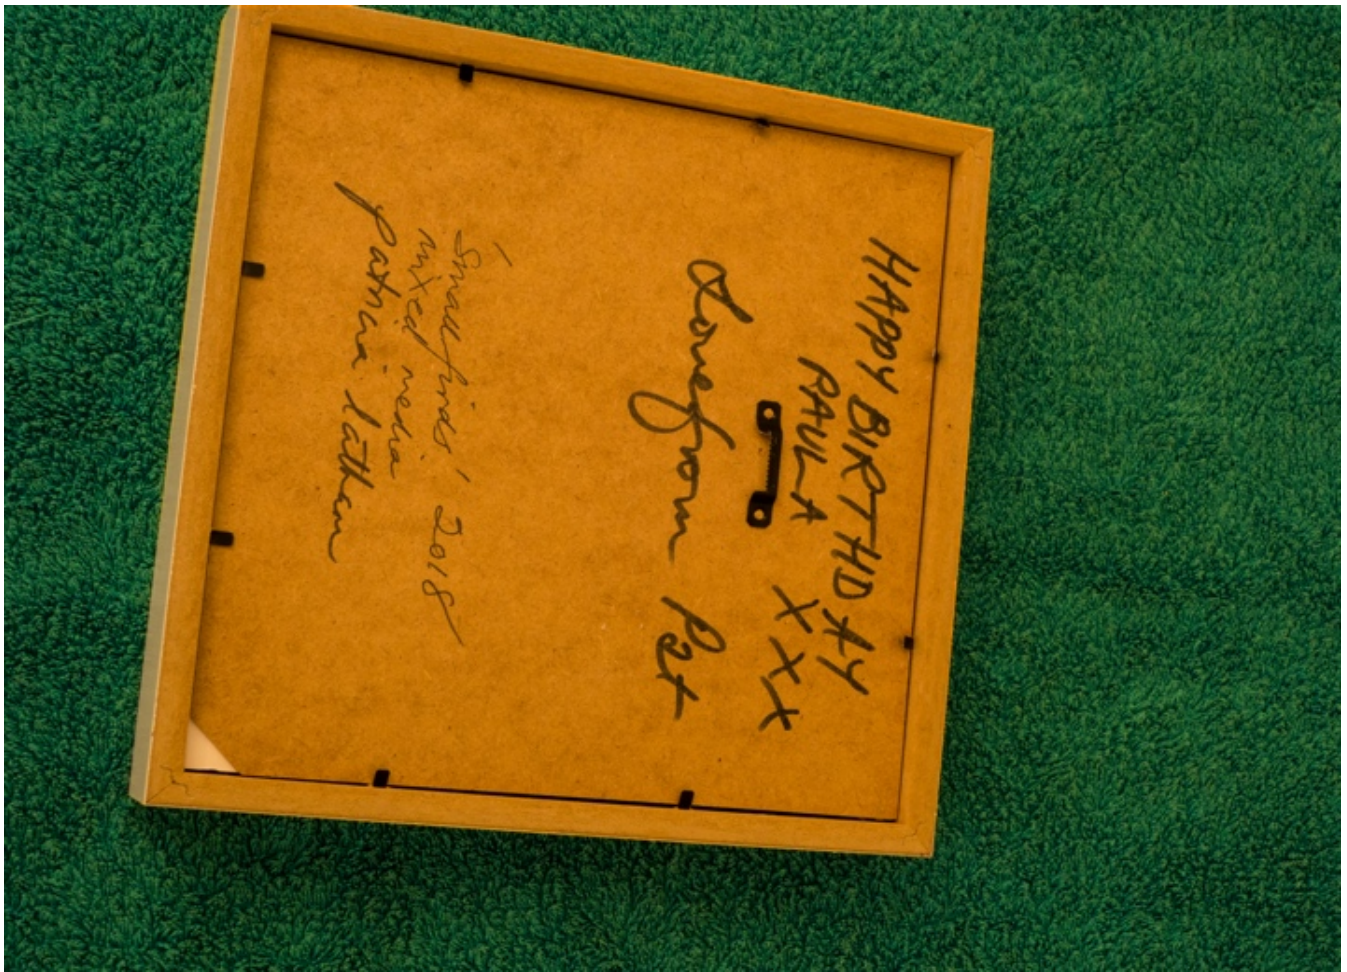 HAPPY BIRTHDAY
PAULA XXX
Love from Pat
'Small finds' 2018
mixed media
patricia latham